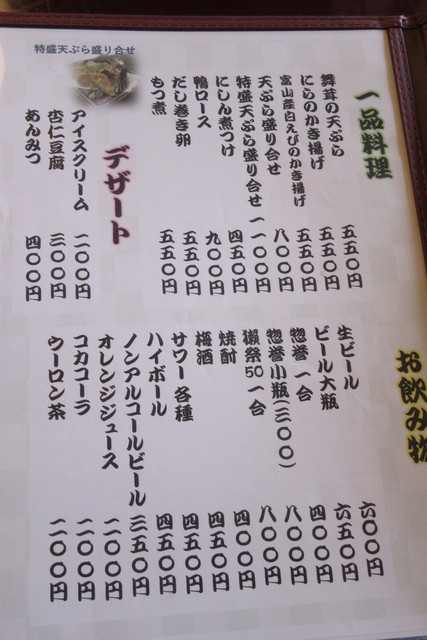 一品料理
舞茸の天ぷら 五五〇円
にらのかき揚げ 五五〇円
富山産白えびのかき揚げ 五五〇円
天ぷら盛り合せ 八〇〇円
特盛天ぷら盛り合せ 一一〇〇円
にしん煮つけ 四五〇円
鴨ロース 九〇〇円
だし巻き卵 五五〇円
もつ煮 五五〇円
特盛天ぷら盛り合せ
デザート
アイスクリーム 二〇〇円
杏仁豆腐 三〇〇円
あんみつ 四〇〇円
お飲み物
生ビール 六〇〇円
ビール大瓶 六五〇円
惣誉 一合 四〇〇円
惣誉小瓶(三〇〇) 八〇〇円
獺祭50一合 八〇〇円
焼酎 四〇〇円
梅酒 四五〇円
サワー各種 四五〇円
ハイボール 四五〇円
ノンアルコールビール 三五〇円
オレンジジュース 二〇〇円
コカコーラ 二〇〇円
ウーロン茶 二〇〇円